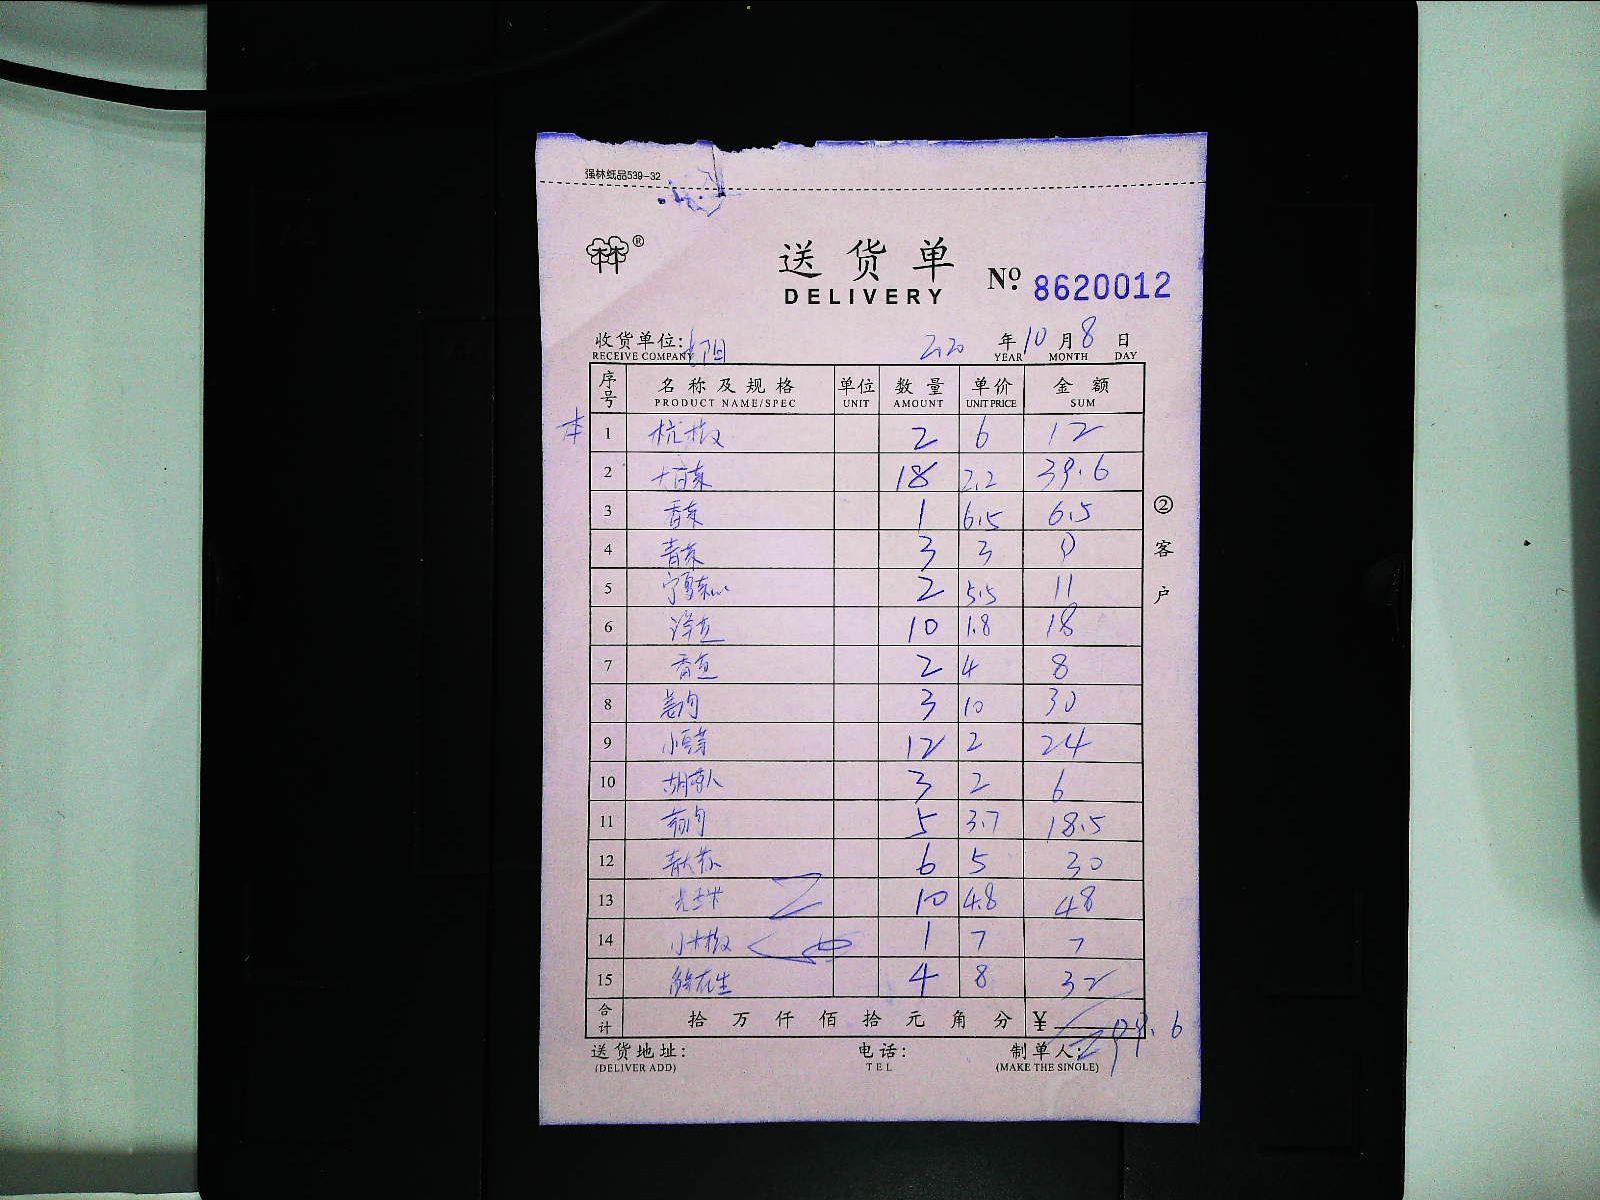 强林纸品539-32
®
送货单
DELIVERY
Nº. 8620012
收货单位: 2020 年 10 月 8 日
RECEIVE COMPANY YEAR MONTH DAY
序号 名称及规格 单位 数量 单价 金额
PRODUCT NAME/SPEC UNIT AMOUNT UNIT PRICE SUM
1 杭椒 2 6 12
2 18 2.2 39.6
3 香菜 1 6.5 6.5
4 青菜 3 3 9
5 宁夏菜心 2 5.5 11
6 洋芋 10 1.8 18
7 2 4 8
8 3 10 30
9 小豆芽 12 2 24
10 胡萝卜 3 2 6
11 5 3.7 18.5
12 6 5 30
13 10 4.8 48
14 小米椒 1 7 7
15 4 8 32
合计 拾 万 仟 佰 拾 元 角 分 ¥ 299.6
送货地址: 电话: 制单人:
(DELIVER ADD) TEL (MAKE THE SINGLE)
②客户